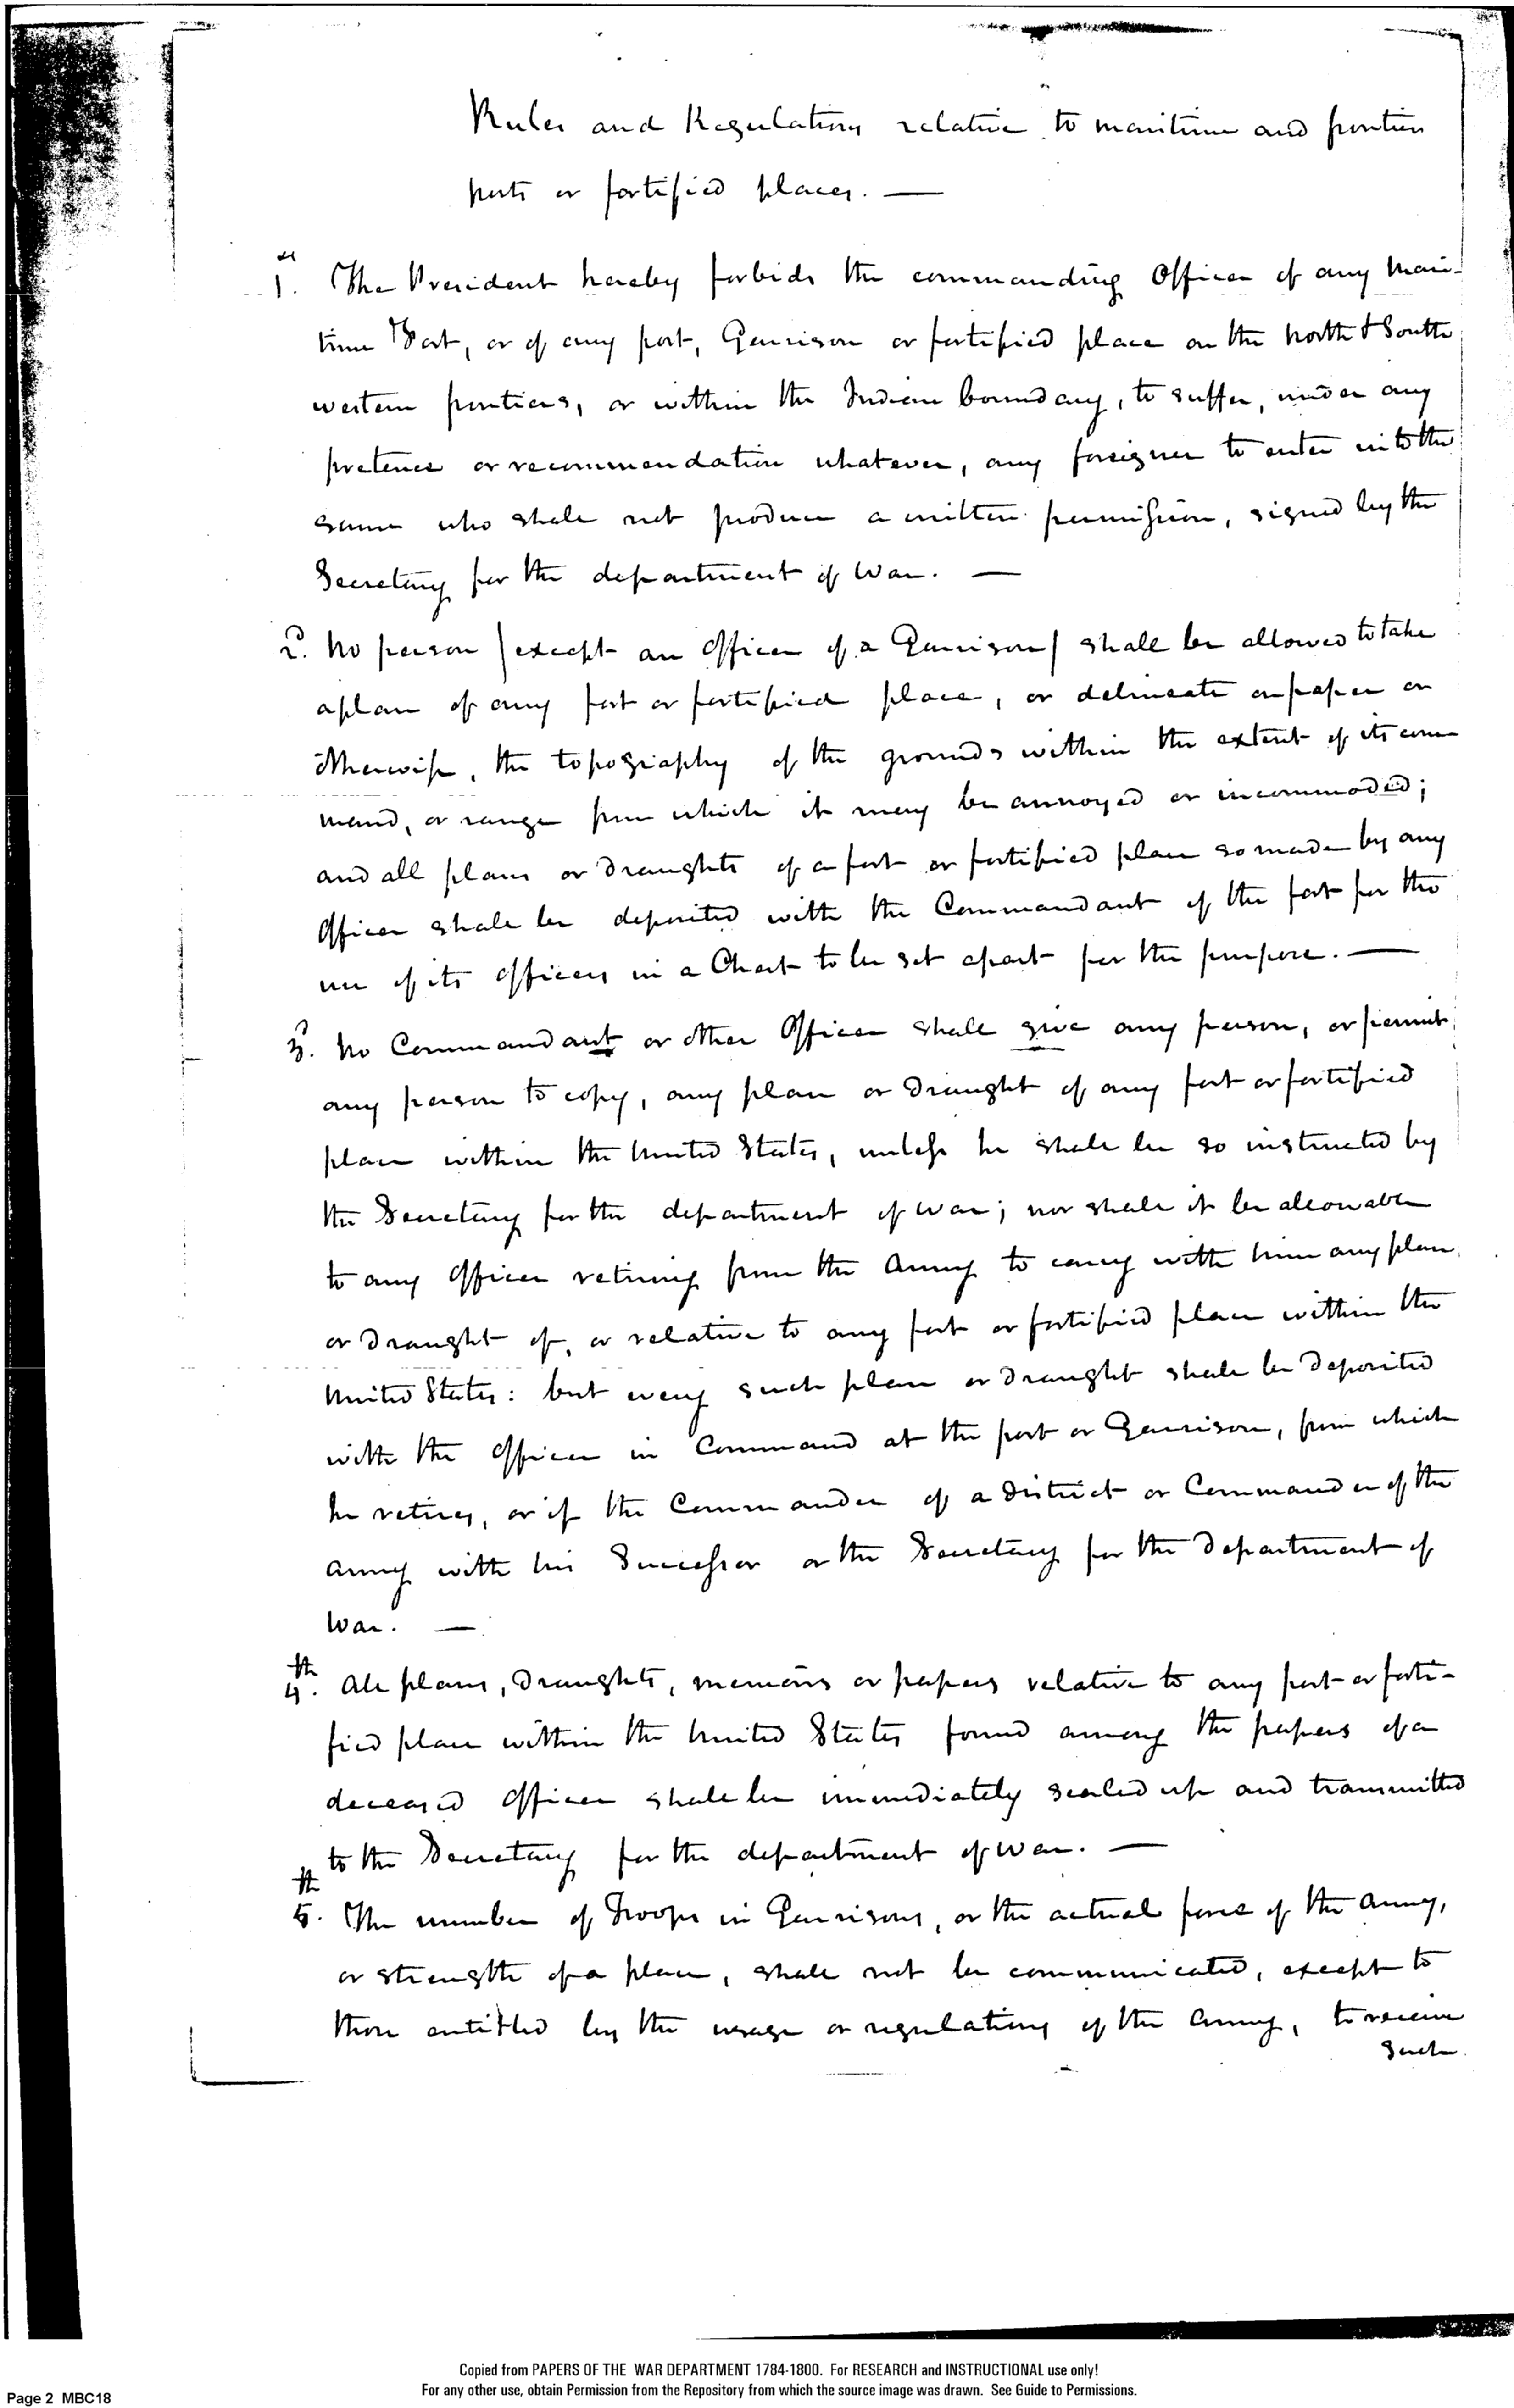 Rules and Regulations relative to maritime and frontier
posts or fortified places. —
1st. The President hereby forbids the commanding Officer of any Mari-
time Port, or of any post, Garrison or fortified place on the North & South
western frontiers, or within the Indian boundary, to suffer, under any
pretence or recommendation whatever, any foreigner to enter into the
same who shall not produce a written permission, signed by the
Secretary for the department of War. —
2d. No person (except an Officer of a Garrison) shall be allowed to take
a plan of any fort or fortified place, or delineate on paper or
otherwise, the topography of the grounds within the extent of its com
mand, or range from which it may be annoyed or incommoded;
and all plans or draughts of a fort or fortified place so made by any
Officer shall be deposited with the Commandant of the fort for the
use of its Officers in a Chest to be set apart for the purpose. —
3d. No Commandant or other Officer shall give any person, or permit
any person to copy, any plan or draught of any fort or fortified
place within the United States, unless he shall be so instructed by
the Secretary for the department of war; nor shall it be allowable
to any Officer retiring from the Army to carry with him any plan
or draught of, or relative to any fort or fortified place within the
United States: but every such plan or draught shall be deposited
with the Officer in Command at the post or Garrison, from which
he retires, or if the Commander of a district or Commander of the
army with his Successor or the Secretary for the Department of
War. —
4th. All plans, draughts, memoirs or papers relative to any fort or forti-
fied place within the United States found among the papers of a
deceased Officer shall be immediately sealed up and transmitted
to the Secretary for the department of War. —
5th. The number of Troops in Garrisons, or the actual force of the Army,
or strength of a place, shall not be communicated, except to
those entitled by the usage or regulations of the Army, to receive
such
Copied from PAPERS OF THE WAR DEPARTMENT 1784-1800. For RESEARCH and INSTRUCTIONAL use only!
For any other use, obtain Permission from the Repository from which the source image was drawn. See Guide to Permissions.
Page 2 MBC18